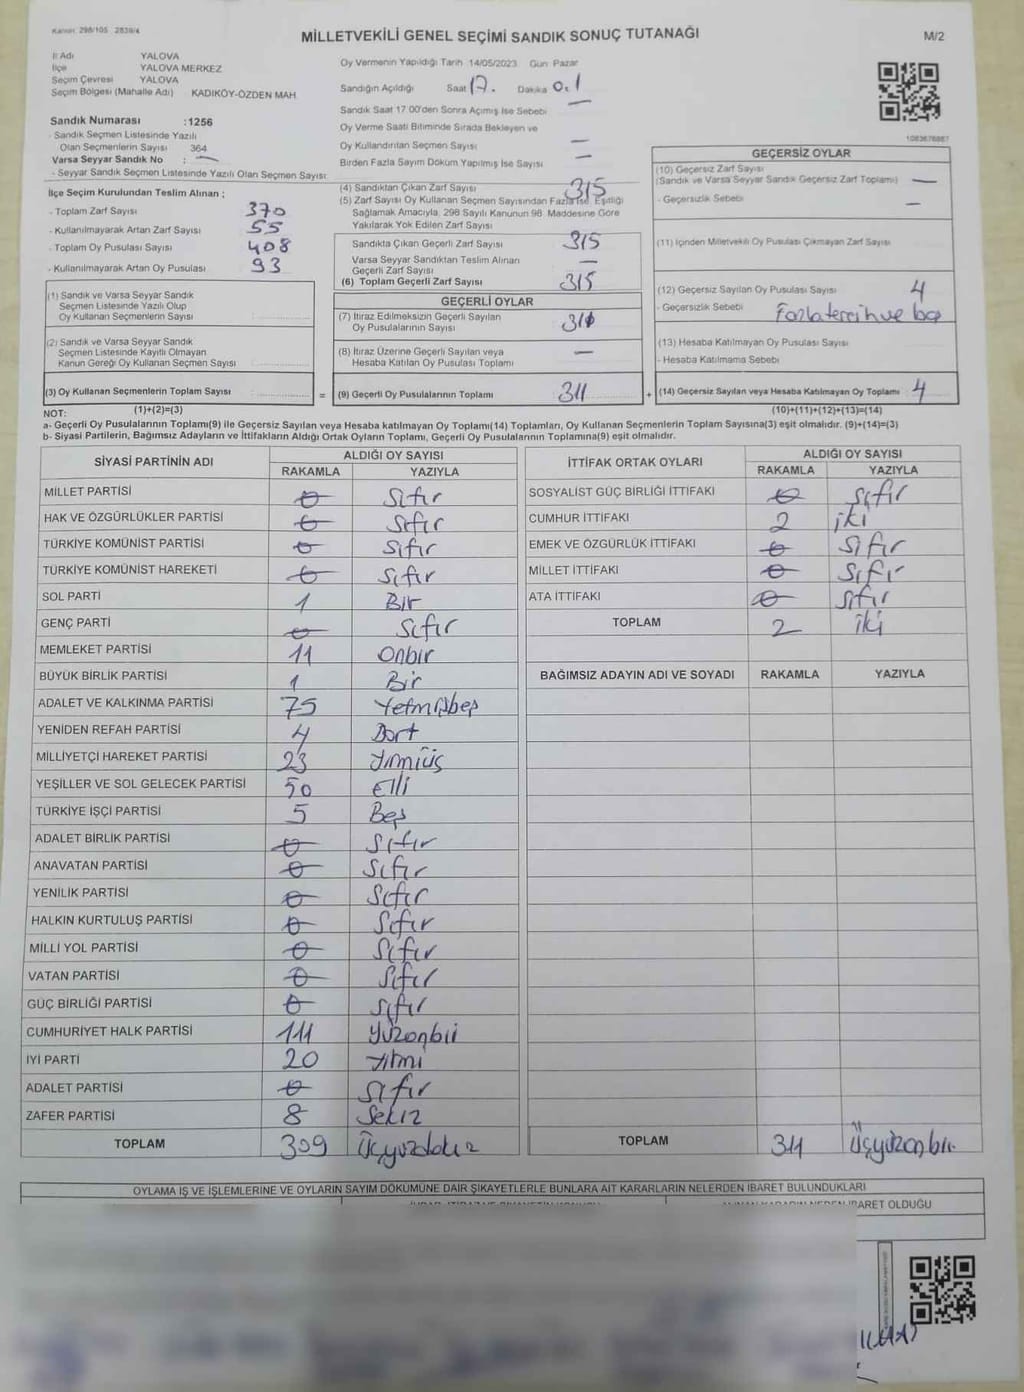 Kanun: 298/105 2839/4
MİLLETVEKİLİ GENEL SEÇİMİ SANDIK SONUÇ TUTANAĞI
M/2
İl Adı YALOVA
İlçe YALOVA MERKEZ
Seçim Çevresi YALOVA
Seçim Bölgesi (Mahalle Adı) KADIKÖY-ÖZDEN MAH.
Sandık Numarası :1256
- Sandık Seçmen Listesinde Yazılı
Olan Seçmenlerin Sayısı 364
Varsa Seyyar Sandık No : —
- Seyyar Sandık Seçmen Listesinde Yazılı Olan Seçmen Sayısı:
Oy Vermenin Yapıldığı Tarih 14/05/2023 Gün Pazar
Sandığın Açıldığı Saat 17. Dakika 01
Sandık Saat 17.00'den Sonra Açımış İse Sebebi —
Oy Verme Saati Bitiminde Sırada Bekleyen ve
Oy Kullandırılan Seçmen Sayısı —
Birden Fazla Sayım Döküm Yapılmış İse Sayısı —
1083676867
İlçe Seçim Kurulundan Teslim Alınan ;
- Toplam Zarf Sayısı 370
- Kullanılmayarak Artan Zarf Sayısı 55
- Toplam Oy Pusulası Sayısı 408
- Kullanılmayarak Artan Oy Pusulası 93
(1) Sandık ve Varsa Seyyar Sandık
Seçmen Listesinde Yazılı Olup
Oy Kullanan Seçmenlerin Sayısı
(2) Sandık ve Varsa Seyyar Sandık
Seçmen Listesinde Kayıtlı Olmayan
Kanun Gereği Oy Kullanan Seçmen Sayısı
(3) Oy Kullanan Seçmenlerin Toplam Sayısı =
(1)+(2)=(3)
(4) Sandıktan Çıkan Zarf Sayısı 315
(5) Zarf Sayısı Oy Kullanan Seçmen Sayısından Fazla İse, Eşitliği
Sağlamak Amacıyla, 298 Sayılı Kanunun 98. Maddesine Göre
Yakılarak Yok Edilen Zarf Sayısı
Sandıkta Çıkan Geçerli Zarf Sayısı 315
Varsa Seyyar Sandıktan Teslim Alınan
Geçerli Zarf Sayısı —
(6) Toplam Geçerli Zarf Sayısı 315
GEÇERLİ OYLAR
(7) İtiraz Edilmeksizin Geçerli Sayılan
Oy Pusulalarının Sayısı
(8) İtiraz Üzerine Geçerli Sayılan veya
Hesaba Katılan Oy Pusulası Toplamı —
(9) Geçerli Oy Pusulalarının Toplamı 311 +
GEÇERSİZ OYLAR
(10) Geçersiz Zarf Sayısı
(Sandık ve Varsa Seyyar Sandık Geçersiz Zarf Toplamı) —
- Geçersizlik Sebebi —
(11) İçinden Milletvekili Oy Pusulası Çıkmayan Zarf Sayısı
(12) Geçersiz Sayılan Oy Pusulası Sayısı 4
- Geçersizlik Sebebi Fazla tercih ve boş
(13) Hesaba Katılmayan Oy Pusulası Sayısı
- Hesaba Katılmama Sebebi
(14) Geçersiz Sayılan veya Hesaba Katılmayan Oy Toplamı 4
(10)+(11)+(12)+(13)=(14)
NOT:
a- Geçerli Oy Pusulalarının Toplamı(9) ile Geçersiz Sayılan veya Hesaba katılmayan Oy Toplamı(14) Toplamları, Oy Kullanan Seçmenlerin Toplam Sayısına(3) eşit olmalıdır. (9)+(14)=(3)
b- Siyasi Partilerin, Bağımsız Adayların ve İttifakların Aldığı Ortak Oyların Toplamı, Geçerli Oy Pusulalarının Toplamına(9) eşit olmalıdır.
SİYASİ PARTİNİN ADI ALDIĞI OY SAYISI
RAKAMLA YAZIYLA
MİLLET PARTİSİ 0 Sıfır
HAK VE ÖZGÜRLÜKLER PARTİSİ 0 Sıfır
TÜRKİYE KOMÜNİST PARTİSİ 0 Sıfır
TÜRKİYE KOMÜNİST HAREKETİ 0 Sıfır
SOL PARTİ 1 Bir
GENÇ PARTİ 0 Sıfır
MEMLEKET PARTİSİ 11 Onbir
BÜYÜK BİRLİK PARTİSİ 1 Bir
ADALET VE KALKINMA PARTİSİ 75 Yetmişbeş
YENİDEN REFAH PARTİSİ 4 Dört
MİLLİYETÇİ HAREKET PARTİSİ 23 Yirmiüç
YEŞİLLER VE SOL GELECEK PARTİSİ 50 Elli
TÜRKİYE İŞÇİ PARTİSİ 5 Beş
ADALET BİRLİK PARTİSİ 0 Sıfır
ANAVATAN PARTİSİ 0 Sıfır
YENİLİK PARTİSİ 0 Sıfır
HALKIN KURTULUŞ PARTİSİ 0 Sıfır
MİLLİ YOL PARTİSİ 0 Sıfır
VATAN PARTİSİ 0 Sıfır
GÜÇ BİRLİĞİ PARTİSİ 0 Sıfır
CUMHURİYET HALK PARTİSİ 111 Yüzonbir
İYİ PARTİ 20 Yirmi
ADALET PARTİSİ 0 Sıfır
ZAFER PARTİSİ 8 Sekiz
TOPLAM 309 Üçyüzdokuz
İTTİFAK ORTAK OYLARI ALDIĞI OY SAYISI
RAKAMLA YAZIYLA
SOSYALİST GÜÇ BİRLİĞİ İTTİFAKI 0 Sıfır
CUMHUR İTTİFAKI 2 iki
EMEK VE ÖZGÜRLÜK İTTİFAKI 0 Sıfır
MİLLET İTTİFAKI 0 Sıfır
ATA İTTİFAKI 0 Sıfır
TOPLAM 2 iki
BAĞIMSIZ ADAYIN ADI VE SOYADI RAKAMLA YAZIYLA
TOPLAM 311 Üçyüzonbir
OYLAMA İŞ VE İŞLEMLERİNE VE OYLARIN SAYIM DÖKÜMÜNE DAİR ŞİKAYETLERLE BUNLARA AİT KARARLARIN NELERDEN İBARET BULUNDUKLARI
İBARET OLDUĞU